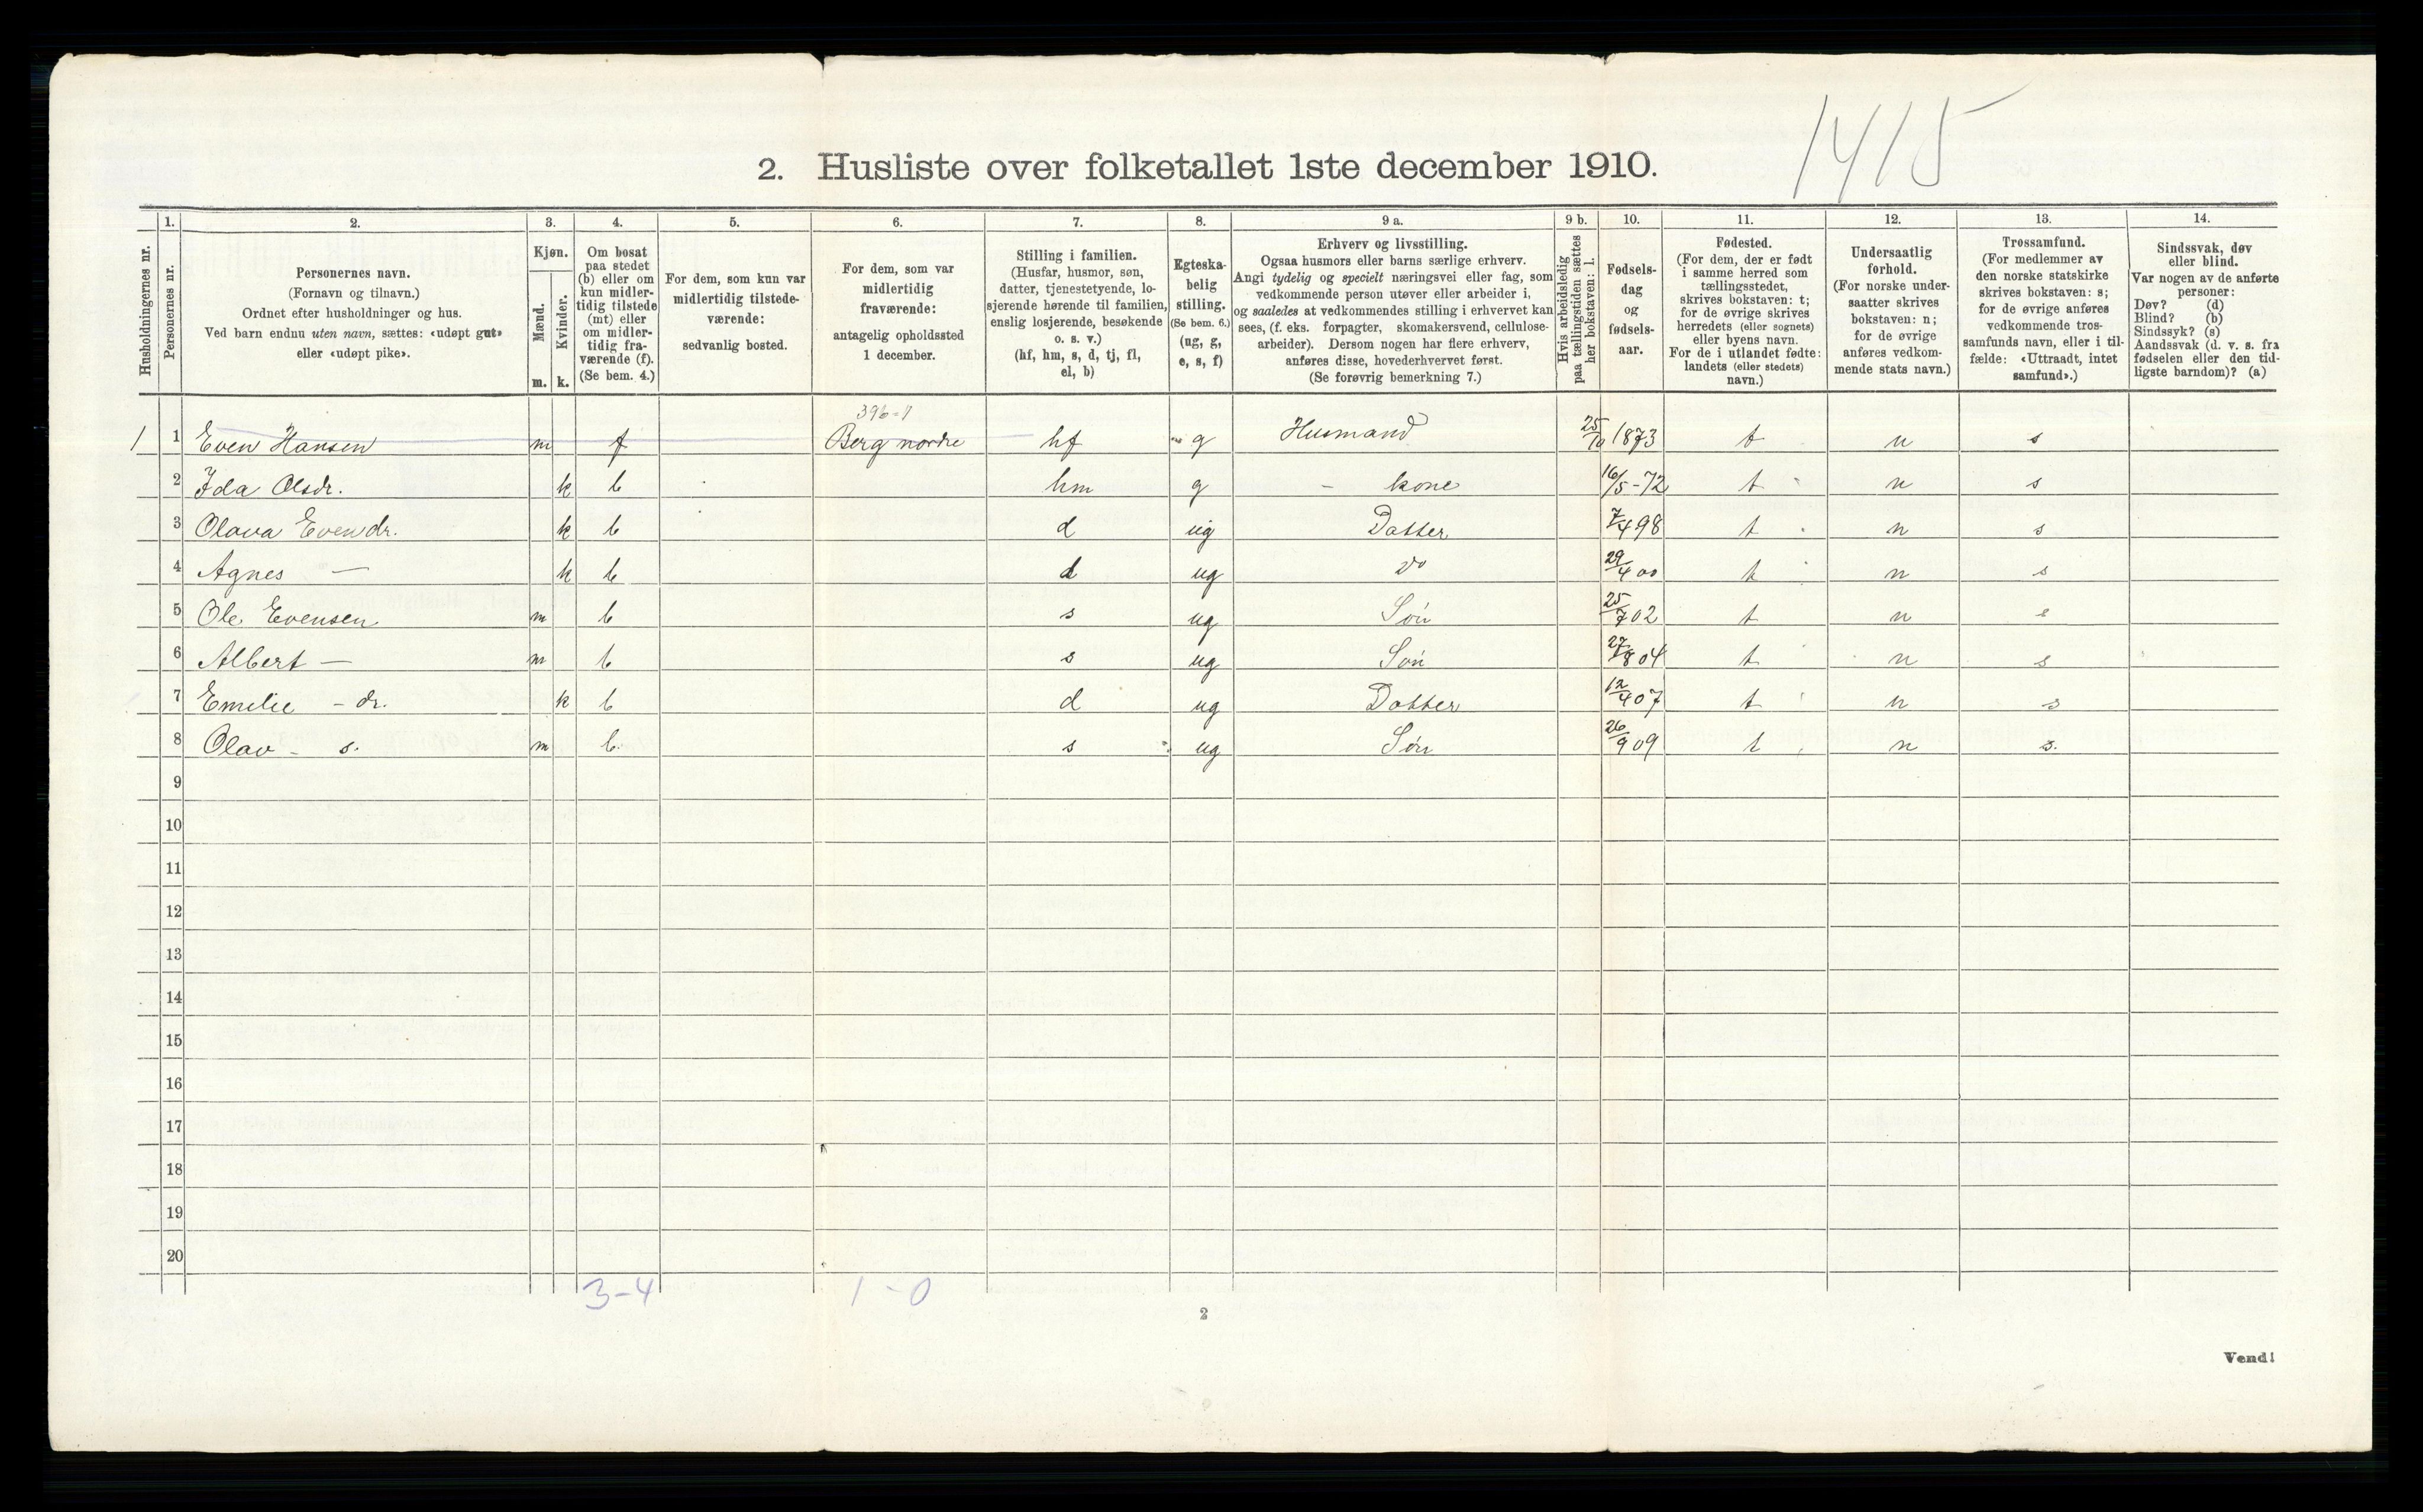 1415
2. Husliste over folketallet 1ste december 1910.
Husholdningernes nr.
1.
Personernes nr.
2.
Personernes navn.
(Fornavn og tilnavn.)
Ordnet efter husholdninger og hus.
Ved barn endnu uten navn, sættes: «udøpt gut»
eller «udøpt pike».
3.
Kjøn.
Mænd.
Kvinder.
m. k.
4.
Om bosat
paa stedet
(b) eller om
kun midler-
tidig tilstede
(mt) eller
om midler-
tidig fra-
værende (f).
(Se bem. 4.)
5.
For dem, som kun var
midlertidig tilstede-
værende:
sedvanlig bosted.
6.
For dem, som var
midlertidig
fraværende:
antagelig opholdssted
1 december.
7.
Stilling i familien.
(Husfar, husmor, søn,
datter, tjenestetyende, lo-
sjerende hørende til familien,
enslig losjerende, besøkende
o. s. v.)
(hf, hm, s, d, tj, fl,
el, b)
8.
Egteska-
belig
stilling.
(Se bem. 6.)
(ug, g,
e, s, f)
9 a.
Erhverv og livsstilling.
Ogsaa husmors eller barns særlige erhverv.
Angi tydelig og specielt næringsvei eller fag, som
vedkommende person utøver eller arbeider i,
og saaledes at vedkommendes stilling i erhvervet kan
sees, (f. eks. forpagter, skomakersvend, cellulose-
arbeider). Dersom nogen har flere erhverv,
anføres disse, hovederhvervet først.
(Se forøvrig bemerkning 7.)
9 b.
Hvis arbeidsledig
paa tællingstiden sættes
her bokstaven: l.
10.
Fødsels-
dag
og
fødsels-
aar.
11.
Fødested.
(For dem, der er født
i samme herred som
tællingsstedet,
skrives bokstaven: t;
for de øvrige skrives
herredets (eller sognets)
eller byens navn.
For de i utlandet fødte:
landets (eller stedets)
navn.)
12.
Undersaatlig
forhold.
(For norske under-
saatter skrives
bokstaven: n;
for de øvrige
anføres vedkom-
mende stats navn.)
13.
Trossamfund.
(For medlemmer av
den norske statskirke
skrives bokstaven: s;
for de øvrige anføres
vedkommende tros-
samfunds navn, eller i til-
fælde: «Uttraadt, intet
samfund».)
14.
Sindssvak, døv
eller blind.
Var nogen av de anførte
personer:
Døv? (d)
Blind? (b)
Sindssyk? (s)
Aandssvak (d. v. s. fra
fødselen eller den tid-
ligste barndom)? (a)
396-1
1 1 Even Hansen m f Berg nordre hf g Husmand 25/10 1873 t n s
2 Ida Olsdr. k b hm g - kone 16/5-72 t n s
3 Olava Evendr. k b d ug Datter 7/4 98 t n s
4 Agnes — k b d ug do 29/4 00 t n s
5 Ole Evensen m b s ug Søn 25/7 02 t n s
6 Albert — m b s ug Søn 27/8 04 t n s
7 Emilie - dr. k b d ug Datter 12/4 07 t n s
8 Olav - s. m b s ug Søn 26/9 09 t n s.
9
10
11
12
13
14
15
16
17
18
19
20
3-4 1-0
2
Vend!